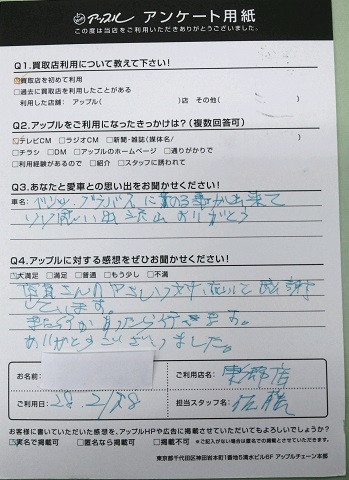 アップル アンケート用紙
この度は当店をご利用いただきありがとうございました。
Q1.買取店利用について教えて下さい!
買取店を初めて利用
□過去に買取店を利用したことがある
利用した店舗: アップル( )店 その他( )
Q2.アップルをご利用になったきっかけは?(複数回答可)
テレビCM □ラジオCM □新聞・雑誌(媒体名/ )
□チラシ □DM □アップルのホームページ □通りがかりで
□利用経験があるので □紹介 □スタッフに誘われて
Q3.あなたと愛車との思い出をお聞かせください!
車名: に乗る事が出来て
思い出 ありがとう
Q4.アップルに対する感想をぜひお聞かせください!
大満足 □満足 □普通 □もう少し □不満
店員さんのやさしい 感謝
しています。
また行きます。
ありがとうございました。
お名前
ご利用店名:
ご利用日: 28.2/28
担当スタッフ名: 佐藤
お客様に書いていただいた感想を、アップルHPや広告に掲載させていただいてもよろしいでしょうか?
実名で掲載可 □匿名なら掲載可 □掲載不可 ※ご記入がない場合は匿名での掲載とさせていただきます。
東京都千代田区神田岩本町1番地5清水ビル6F アップルチェーン本部